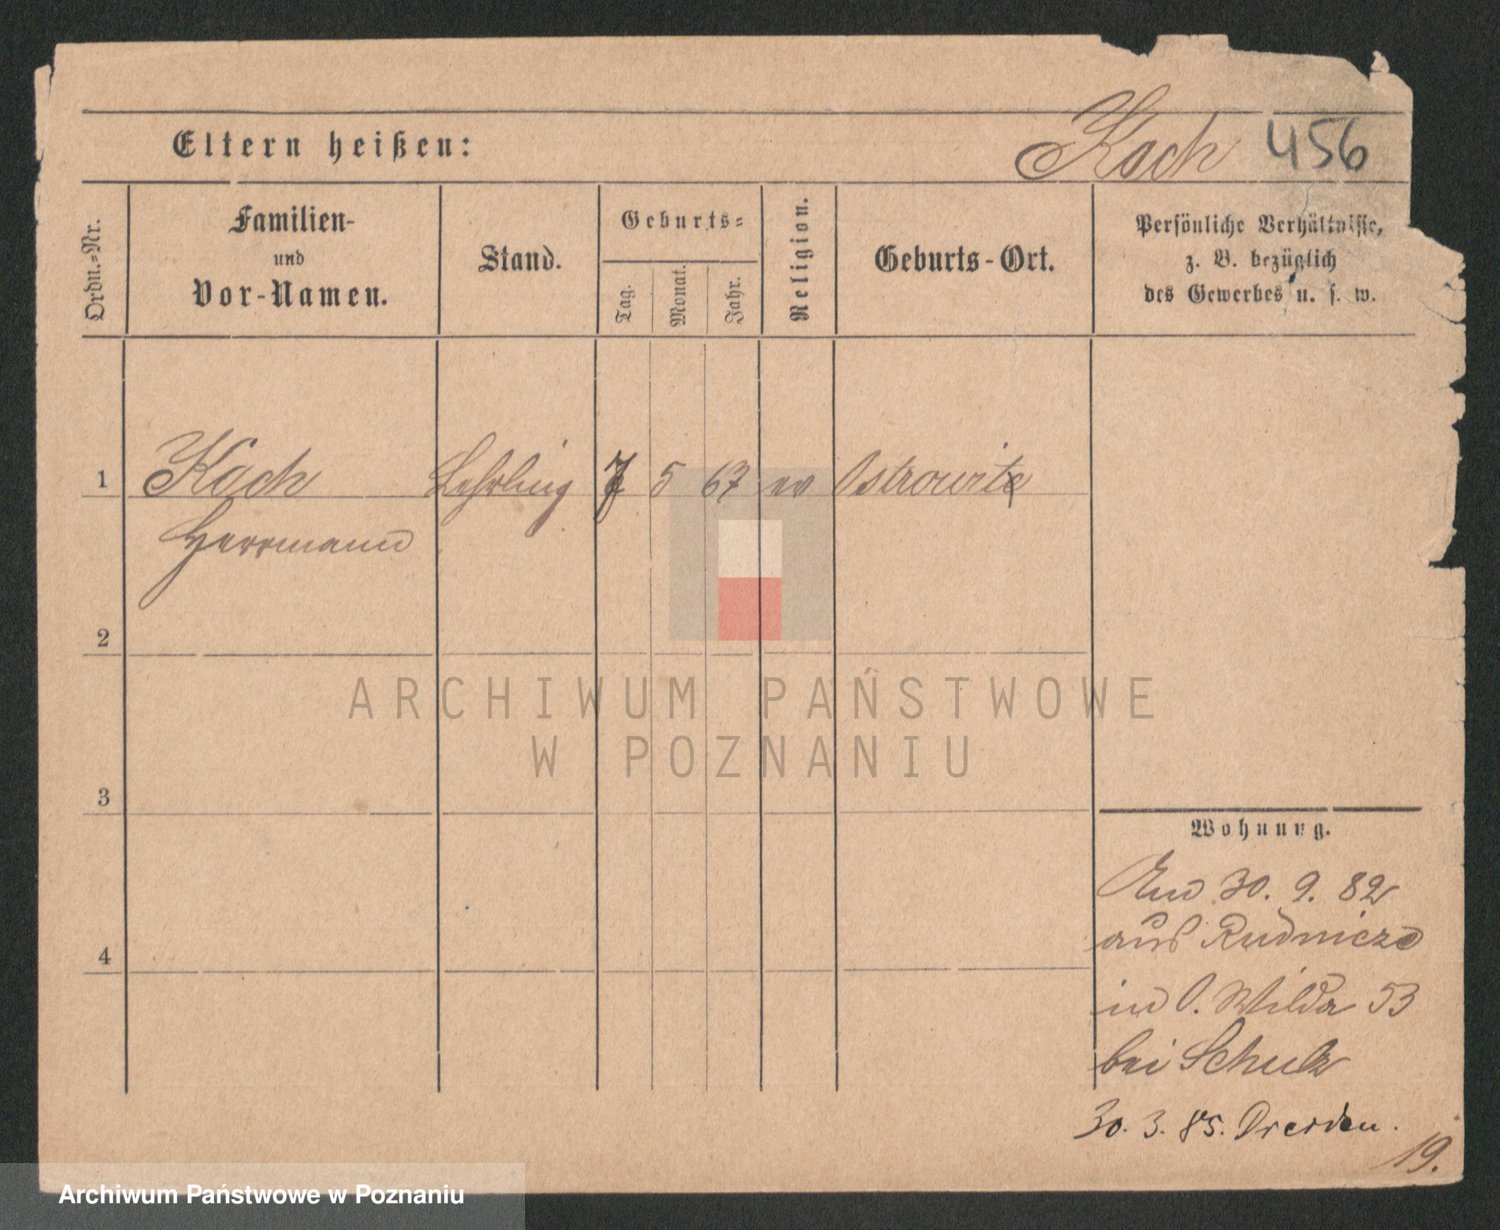 Eltern heißen:
Koch 456
Ordn.=Nr.
Familien-
und
Vor-Namen.
Stand.
Geburts=
Tag.
Monat.
Jahr.
Religion.
Geburts-Ort.
Persönliche Verhältnisse,
z. B. bezüglich
des Gewerbes u. s. w.
1 Koch Lehrling 7 5 67 ev Ostrowite
Herrmann
2
3
4
Wohnung.
30. 9. 82
aus Rudnicze
in O. Wilda 53
bei Schulz
30. 3. 85. Dresden.
19.
ARCHIWUM PAŃSTWOWE
W POZNANIU
Archiwum Państwowe w Poznaniu